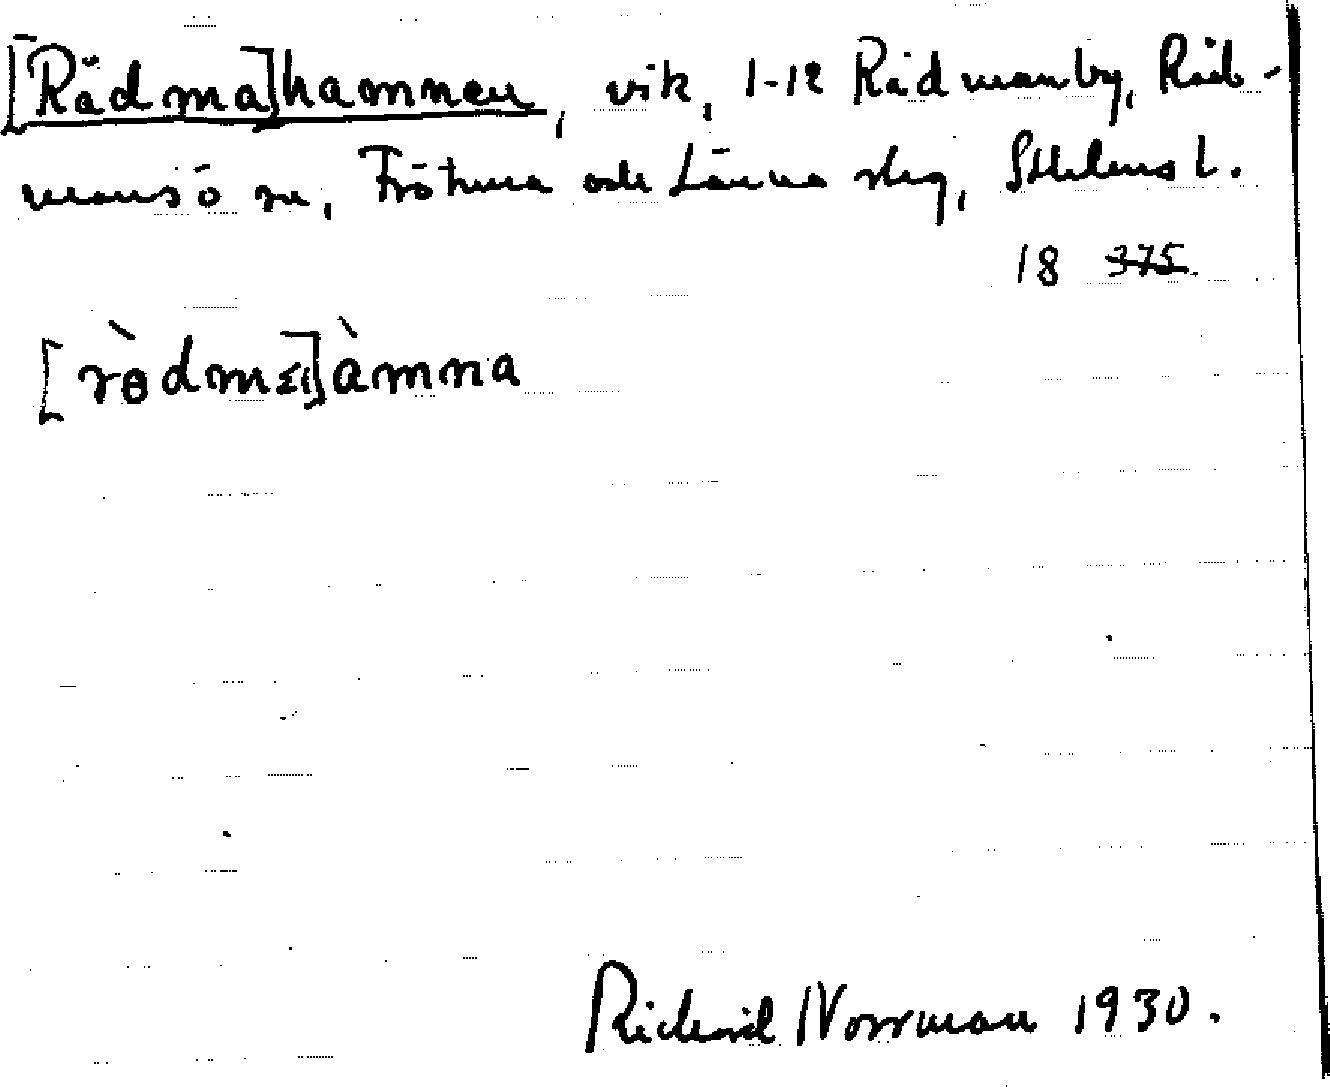 [Rädma]hamnen, vik, 1-12 Rådmanby, Råd-
mansö sn, Frötuna och Länna slg, Sthlms l.
18 375
[rɵ̀dmɛ]àmna
Richard Norrman 1930.